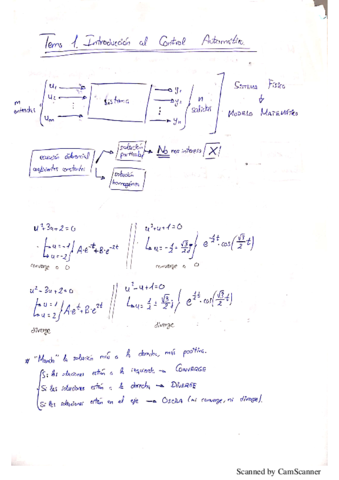 Tema 1. Introducción al Control Automático
m entradas
u1
u2
um
Sistema
y1
y2
yn
n salidas
Sistema Físico
Modelo Matemático
ecuación diferencial
coeficientes constantes
solución particular
No nos interesa X
solución homogénea
u²+3u+2=0
u=-1
u=-2
A·e^-t+B·e^-2t
converge a 0
u²+u+1=0
converge a 0
u²-3u+2=0
u=1
u=2
A·e^t+B·e^2t
diverge
u²-u+1=0
diverge
* "Manda" la solución más a la derecha, más positiva.
Si las soluciones están a la izquierda → CONVERGE
Si las soluciones están a la derecha → DIVERGE
Si las soluciones están en el eje → OSCILA (ni converge, ni diverge).
Scanned by CamScanner